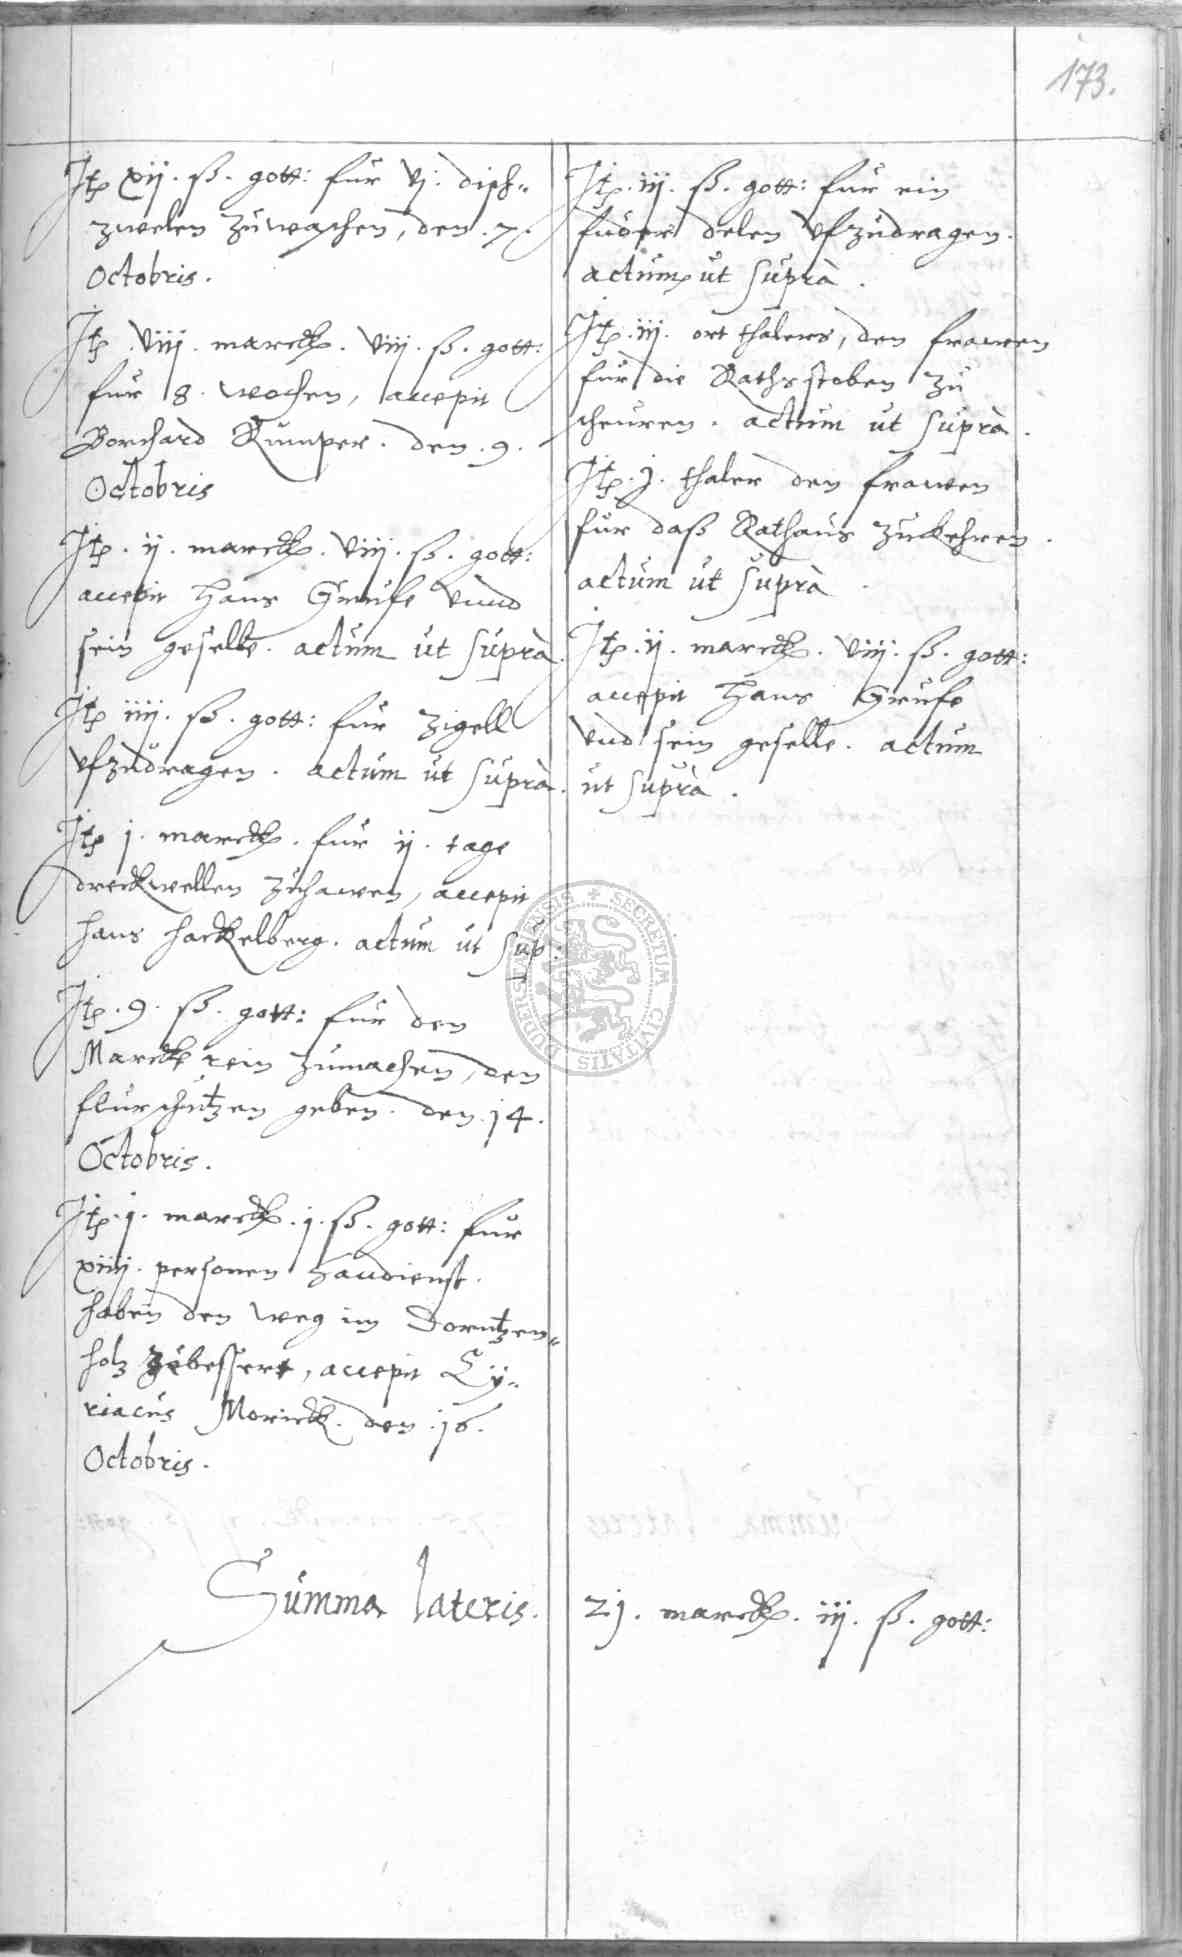 173.
Itp xij. ß. gott: fur vj. disch-
zwelen zuwaschen, den .7.
Octobris.
Itp .viij. marck. viij. ß. gott:
fur 8. wochen, accepit
Borchard Rumper. den .9.
Octobris
Itp. ij. marck. viij. ß. gott:
accepit Hans Grufe vnnd
sein geselle. actum ut suprà.
Itp iiij. ß. gott: fur zigell
vfzudragen. actum ut suprà.
Itp j. marck. fur ij. tage
dreckwellen zuhawen, accepit
hans hackelberg. actum ut sup:
Itp. 9. ß. gott: fur den
Marck rein zumachen, den
flurschutzen geben. den .14.
Octobris.
Itp. j. marck. j. ß. gott: fur
xiiij. personen handienst.
haben den weg im Dorntzen-
holz gebessert, accepit Cy-
riacus Morick. den .16.
Octobris.
Itp. iij. ß. gott: fur ein
fuder delen vfzudragen.
actum ut suprà.
Itp. iij. ort thalers, den frawen
fur die Rathsstoben zu
scheuren. actum ut suprà.
Itp. j. thaler den frawen
fur daß Rathaus zukehren.
actum ut suprà.
Itp. ij. marck. viij. ß. gott:
accepit Hans Grufe
vnd sein geselle. actum
ut suprà.
Summa lateris. 21. marck. iij. ß. gott:
SECRETUM CIVITATIS DUDERSTADENSIS